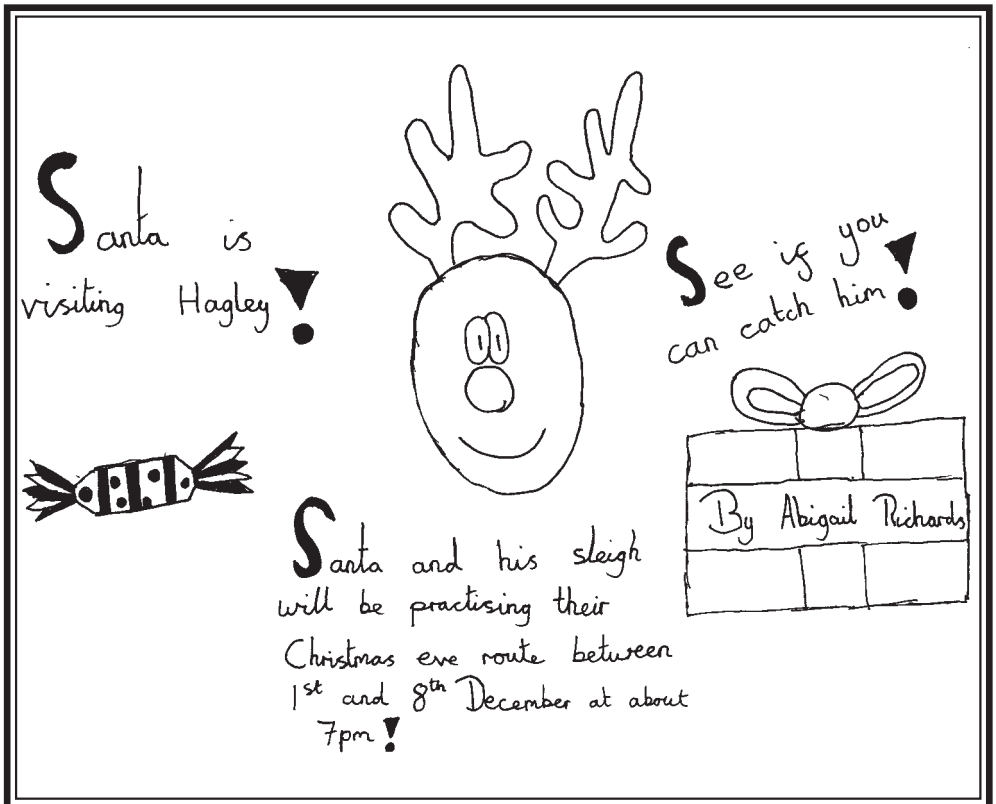 Santa is
visiting Hagley!
See if you
can catch him!
By Abigail Richards
Santa and his sleigh
will be practising their
Christmas eve route between
1st and 8th December at about
7pm!